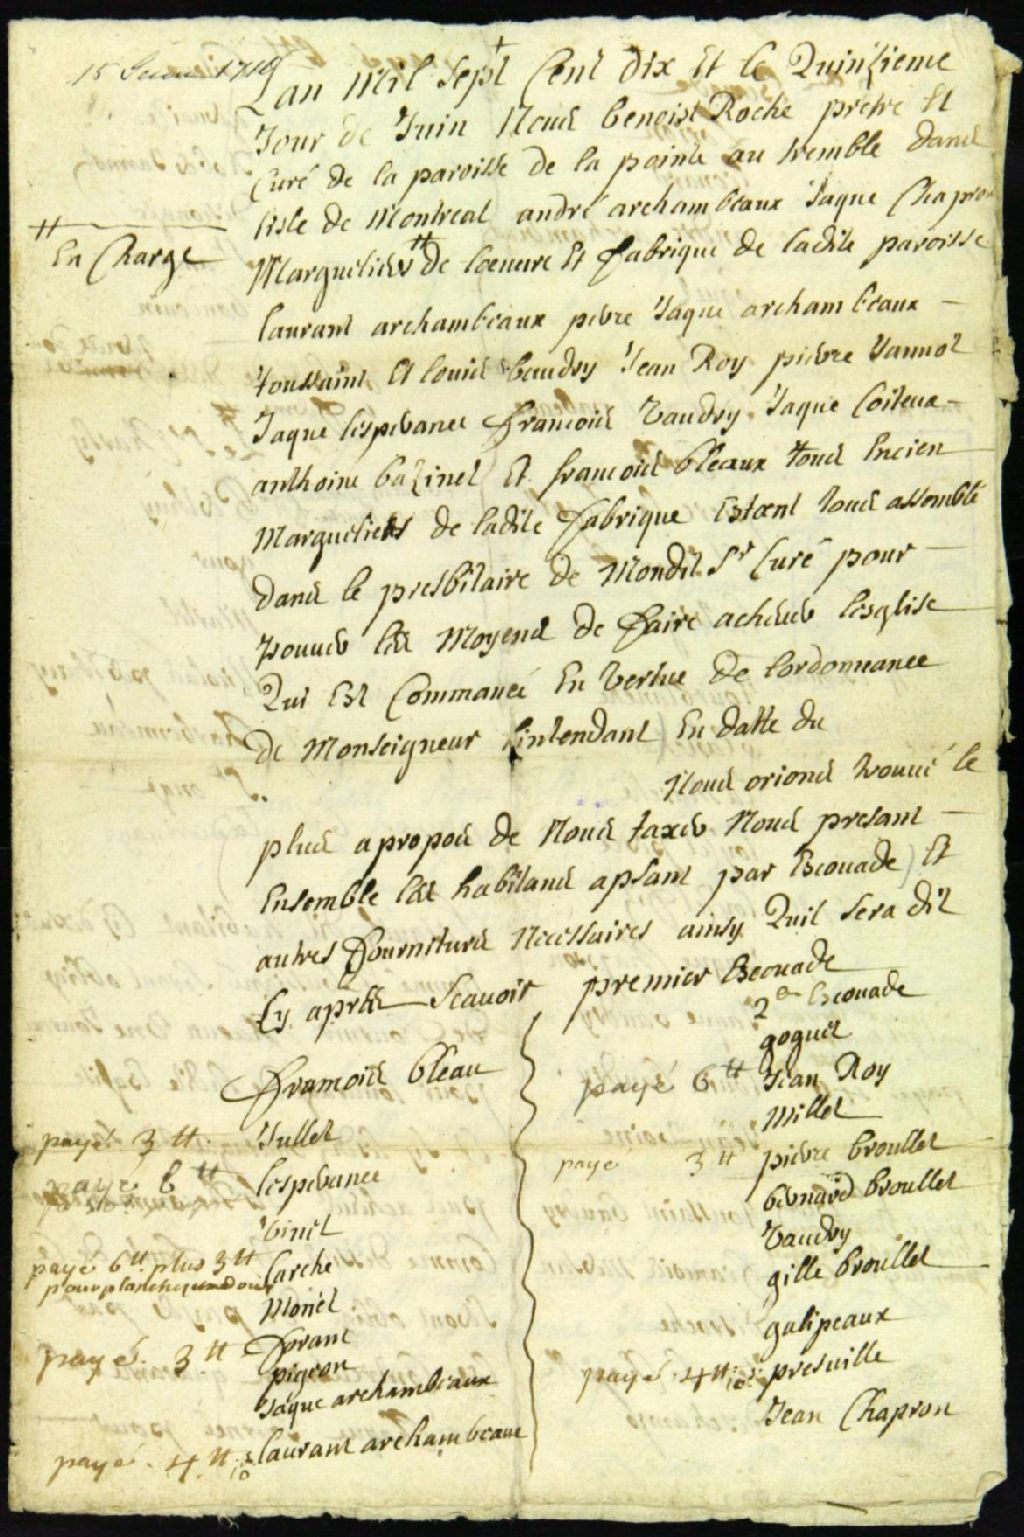 15 Juin 1710
+
Lan Mil Sept Cent dix Et le Quinzieme
Jour de Juin Nous benoist Roche pretre Et
Curé de la paroisse de la pointe au tremble dans
lisle de Montreal andré archambeaux Jaque Chapron
Marguelier # de loeuure Et fabrique de ladite paroisse
# En Charge
laurant archambeaux pierre Jaque archambeaux
toussaint Et louis baudry Jean Roy pierre Jannot
Jaque lesperance francois Vaudry Jaque Coiteux
anthoine bazinet Et francois bleaux tous Encien
Margueliers de ladite fabrique Estoent tous assemblé
dans le presbitaire de Mondit Sr Curé pour
trouuer les Moyens de faire acheuer lesglise
Qui Est Commancé En Vertue de lordonnance
de Monseigneur lintendant En datte du
Nous orions trouué le
plus apropos de Nous taxer Nous presant
Ensemble les habitans apsant par Escouade Et
autres fournitures Necessaires ainsy Quil sera dit
Cy aprés Scauoir premier Escouade
francois bleau
payé 3 tt Jullet
payé 6 tt lesperance
Vinet
payé 6 tt plus 3 tt larche
pour planche
Monet
payé 3 tt frant
pigeon
Jaque archambeaux
payé 4 tt 10s laurant archambeaux
2e Escouade
goguet
payé 6 tt Jean Roy
Millet
payé 3 tt pierre broullet
bernard broullet
Vaudry
gille broullet
galipeaux
payé 4 tt 10s presuille
Jean Chapron